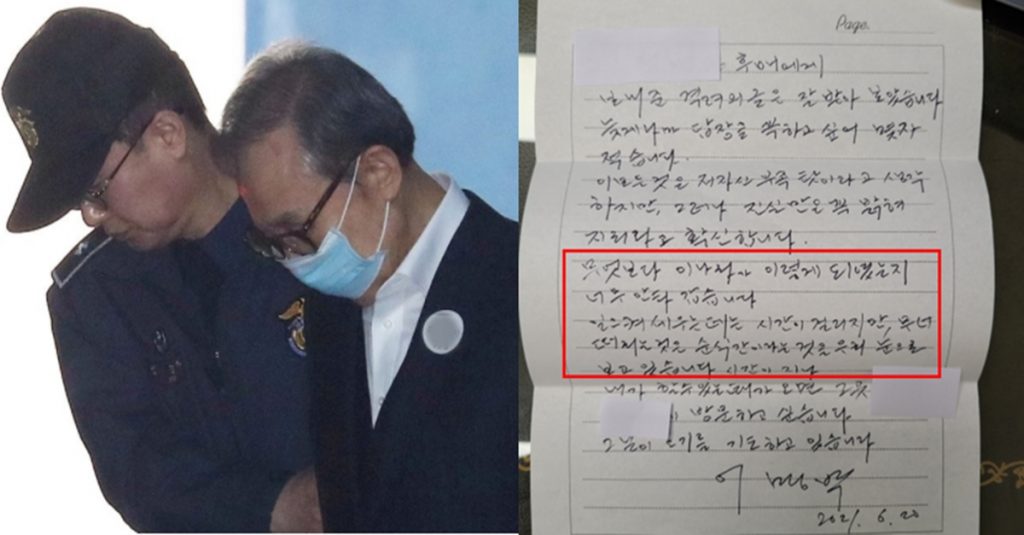 Page.
후배에게
보내준 격려의 글은 잘 받아 보았습니다
늦게나마 답장을 꼭 하고 싶어 몇자
적습니다.
이 모든 것은 저자신 부족 탓이라고 생각
하지만, 그러나 진실만은 꼭 밝혀
지리라고 확신합니다.
무엇보다 이나라가 이렇게 되었는지
너무 안타깝습니다
일으켜 세우는데는 시간이 걸리지만, 무너
떠리는 것은 순식간이라는 것을 우리 눈으로
보고 있습니다 시간이 지나
내가 할수있는때가 오면 그곳
방문하고 싶습니다
그날이 오기를 기도하고 있습니다
이명박
2021. 6. 20